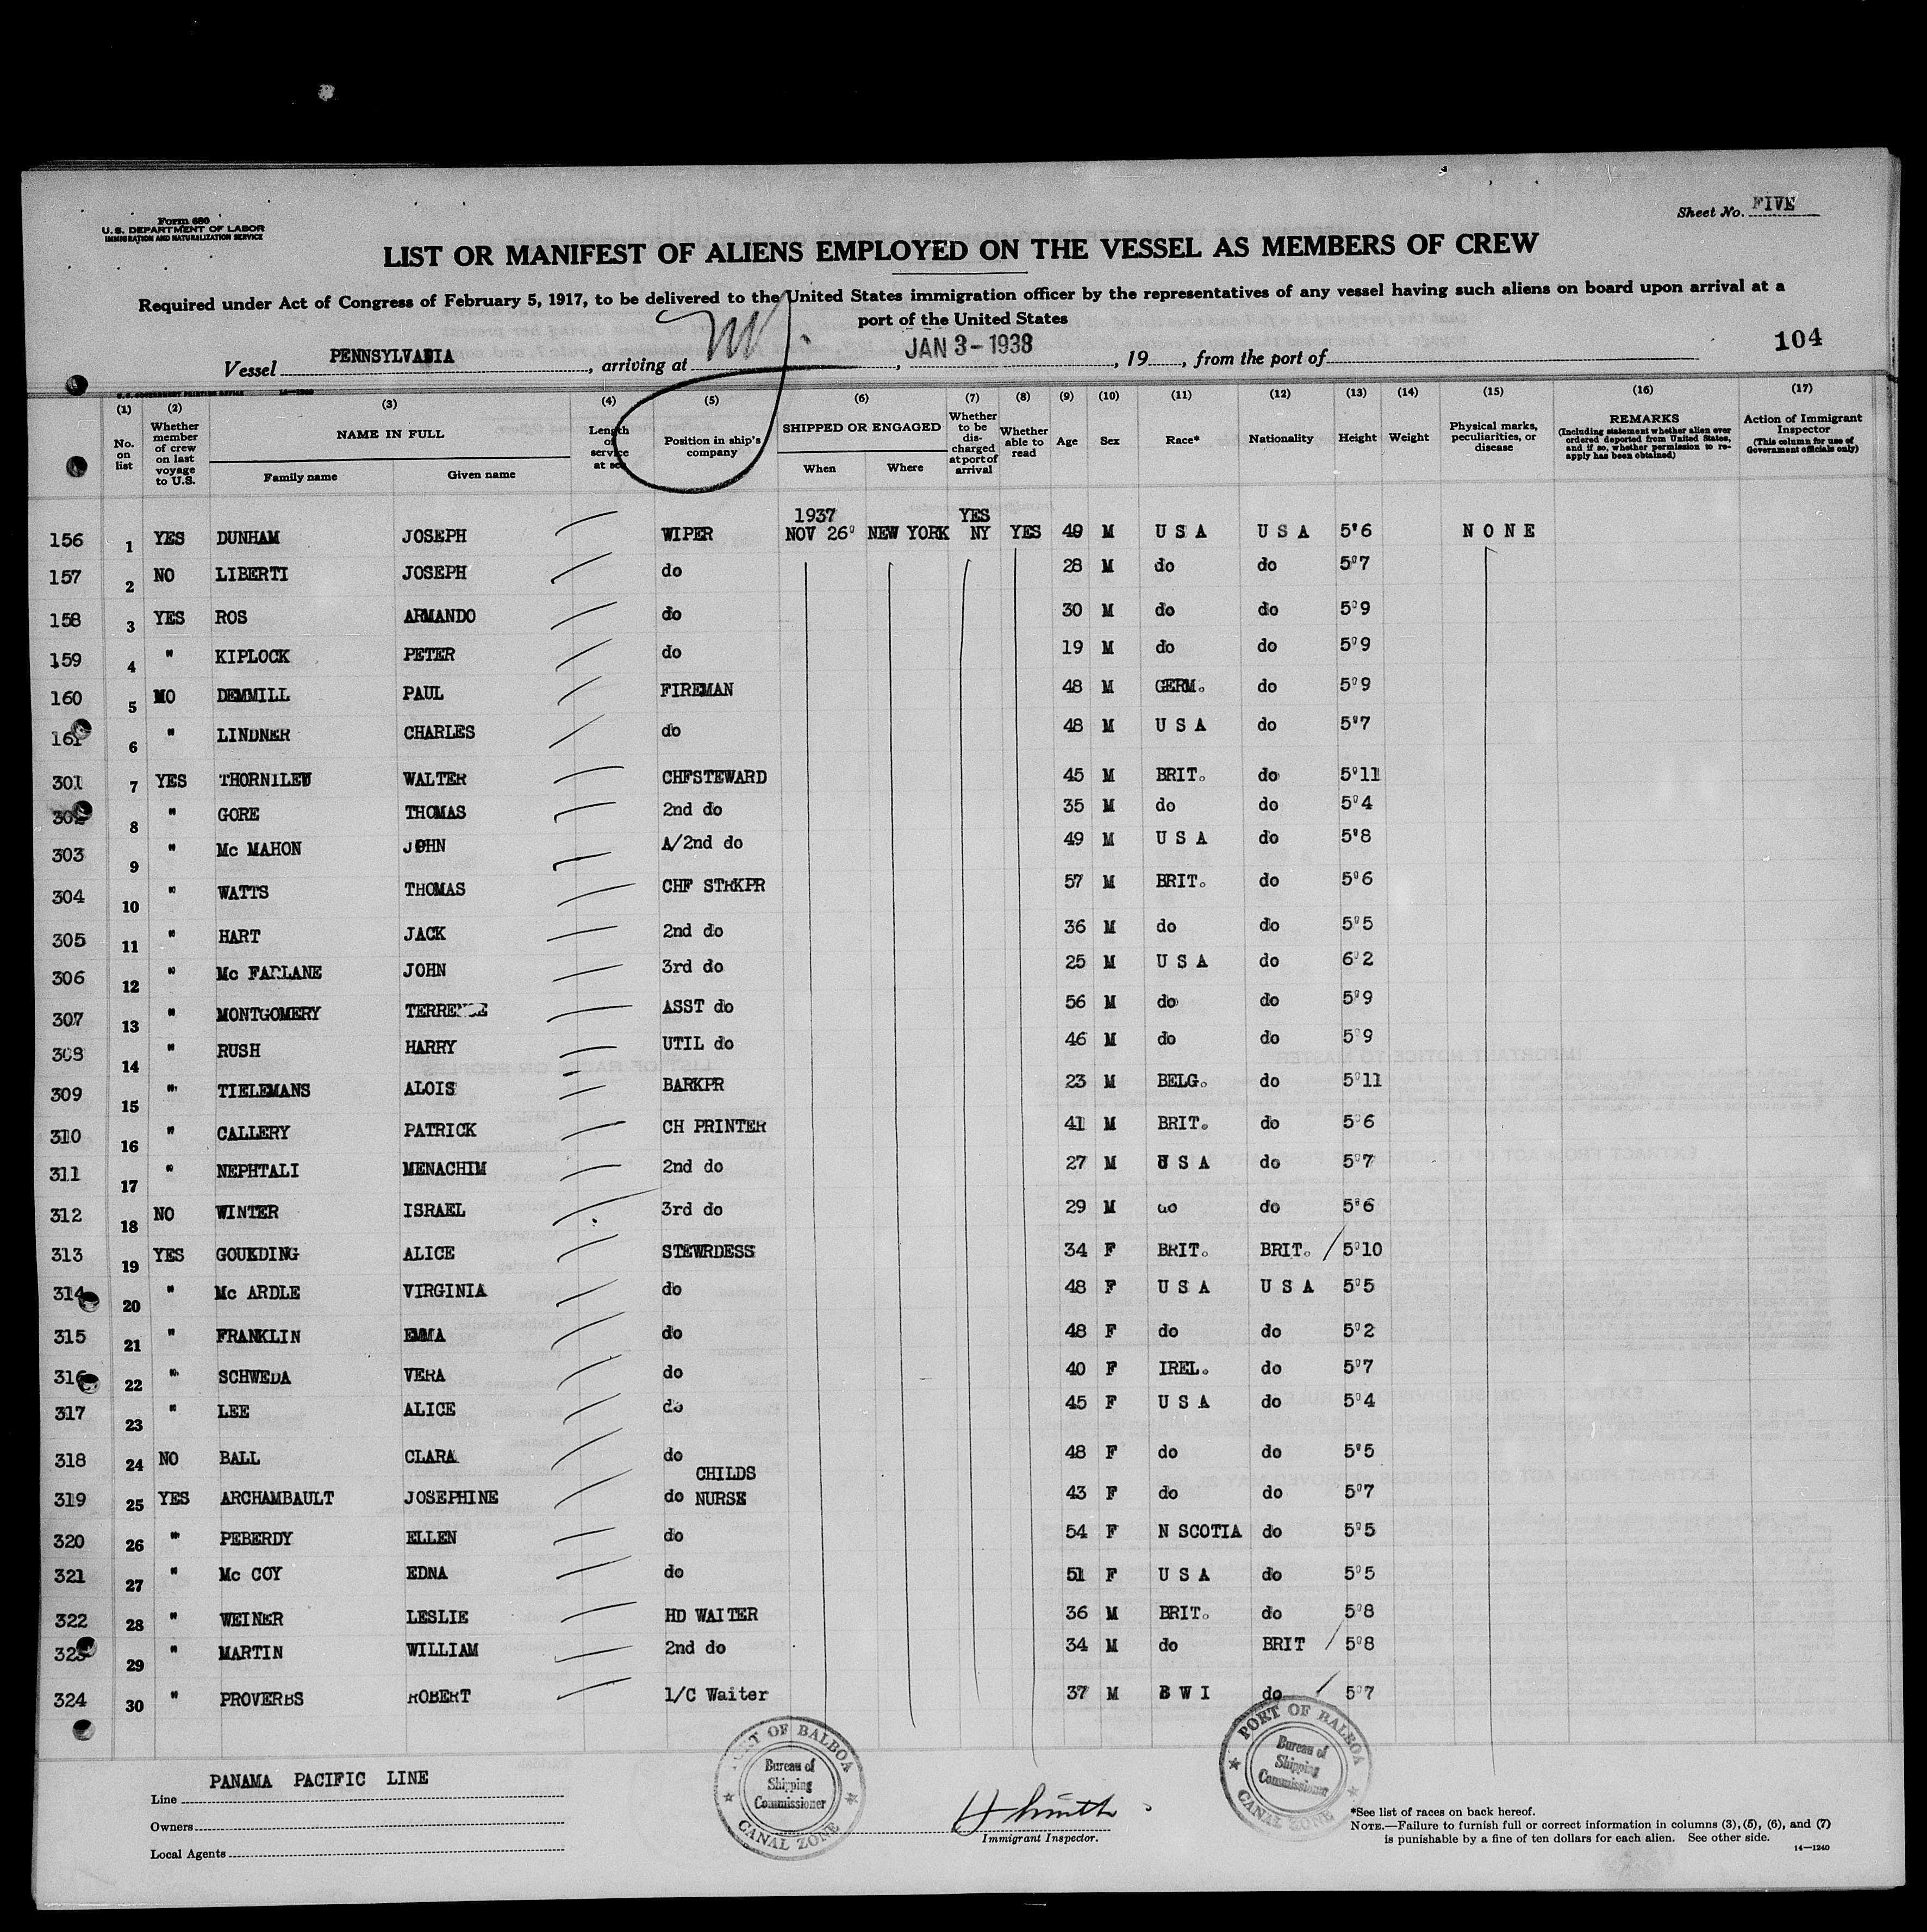 Form 680
U. S. DEPARTMENT OF LABOR
IMMIGRATION AND NATURALIZATION SERVICE
Sheet No. FIVE
LIST OR MANIFEST OF ALIENS EMPLOYED ON THE VESSEL AS MEMBERS OF CREW
Required under Act of Congress of February 5, 1917, to be delivered to the United States immigration officer by the representatives of any vessel having such aliens on board upon arrival at a
port of the United States
104
Vessel PENNSYLVANIA, arriving at NY, JAN 3-1938, 19, from the port of
U.S. GOVERNMENT PRINTING OFFICE
(1) (2) (3) (4) (5) (6) (7) (8) (9) (10) (11) (12) (13) (14) (15) (16) (17)
No. on list
Whether member of crew on last voyage to U.S.
NAME IN FULL
Family name
Given name
Length of service at sea
Position in ship's company
SHIPPED OR ENGAGED
When
Where
Whether to be discharged at port of arrival
Whether able to read
Age
Sex
Race*
Nationality
Height
Weight
Physical marks, peculiarities, or disease
REMARKS
(Including statement whether alien ever ordered deported from United States, and if so, whether permission to reapply has been obtained)
Action of Immigrant Inspector
(This column for use of Government officials only)
1937 YES
156 1 YES DUNHAM JOSEPH WIPER NOV 26 NEW YORK NY YES 49 M U S A U S A 5'6 NONE
157 2 NO LIBERTI JOSEPH do 28 M do do 5'7
158 3 YES ROS ARMANDO do 30 M do do 5'9
159 4 " KIPLOCK PETER do 19 M do do 5'9
160 5 NO DEMMILL PAUL FIREMAN 48 M GERM. do 5'9
161 6 " LINDNER CHARLES do 48 M U S A do 5'7
301 7 YES WALTER CHFSTEWARD 45 M BRIT. do 5'11
302 8 " GORE THOMAS 2nd do 35 M do do 5'4
303 9 " Mc MAHON JOHN A/2nd do 49 M U S A do 5'8
304 10 " WATTS THOMAS CHF STRKPR 57 M BRIT. do 5'6
305 11 " HART JACK 2nd do 36 M do do 5'5
306 12 " Mc FARLANE JOHN 3rd do 25 M U S A do 6'2
307 13 " MONTGOMERY TERRENCE ASST do 56 M do do 5'9
308 14 " RUSH HARRY UTIL do 46 M do do 5'9
309 15 " TIELEMANS ALOIS BARKPR 23 M BELG. do 5'11
310 16 " CALLERY PATRICK CH PRINTER 41 M BRIT. do 5'6
311 17 " NEPHTALI MENACHIM 2nd do 27 M U S A do 5'7
312 18 NO WINTER ISRAEL 3rd do 29 M do do 5'6
313 19 YES GOUKDING ALICE STEWRDESS 34 F BRIT. BRIT. / 5'10
314 20 " Mc ARDLE VIRGINIA do 48 F U S A U S A 5'5
315 21 " FRANKLIN EMMA do 48 F do do 5'2
316 22 " SCHWEDA VERA do 40 F IREL. do 5'7
317 23 " LEE ALICE do 45 F U S A do 5'4
318 24 NO BALL CLARA do 48 F do do 5'5
CHILDS
319 25 YES ARCHAMBAULT JOSEPHINE do NURSE 43 F do do 5'7
320 26 " PEBERDY ELLEN do 54 F N SCOTIA do 5'5
321 27 " Mc COY EDNA do 51 F U S A do 5'5
322 28 " WEINER LESLIE HD WAITER 36 M BRIT. do 5'8
323 29 " MARTIN WILLIAM 2nd do 34 M do BRIT / 5'8
324 30 " PROVERBS ROBERT 1/C Waiter 37 M B W I do / 5'7
PORT OF BALBOA
Bureau of
Shipping
Commissioner
CANAL ZONE
PORT OF BALBOA
Bureau of
Shipping
Commissioner
CANAL ZONE
Line PANAMA PACIFIC LINE
Owners
Local Agents
H Smith
Immigrant Inspector.
*See list of races on back hereof.
NOTE.—Failure to furnish full or correct information in columns (3), (5), (6), and (7)
is punishable by a fine of ten dollars for each alien. See other side.
14—1240